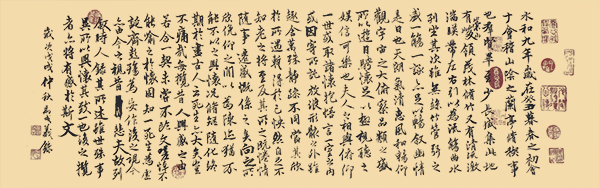 永和九年歲在癸丑暮春之初會
于會稽山陰之蘭亭脩稧事
也羣賢畢至少長咸集此地
有崇山峻領茂林脩竹又有清流激
湍暎帶左右引以為流觴曲水
列坐其次雖無絲竹管弦之
盛一觴一詠亦足以暢叙幽情
是日也天朗氣清惠風和暢仰
觀宇宙之大俯察品類之盛
所以遊目騁懷足以極視聽之
娛信可樂也夫人之相與俯仰
一世或取諸懷抱悟言一室之內
或因寄所託放浪形骸之外雖
趣舍萬殊靜躁不同當其欣
於所遇暫得於己怏然自足不
知老之將至及其所之既惓情
隨事遷感慨係之矣向之所
欣俛仰之間以為陳迹猶不
能不以之興懷況脩短隨化終
期於盡古人云死生亦大矣豈
不痛哉每攬昔人興感之由
若合一契未嘗不臨文嗟悼不
能喻之於懷固知一死生為虛
誕齊彭殤為妄作後之視今
亦由今之視昔悲夫故列
叙時人錄其所述雖世殊事
異所以興懷其致一也後之攬
者亦將有感於斯文
歲次戊戌仲秋義錄